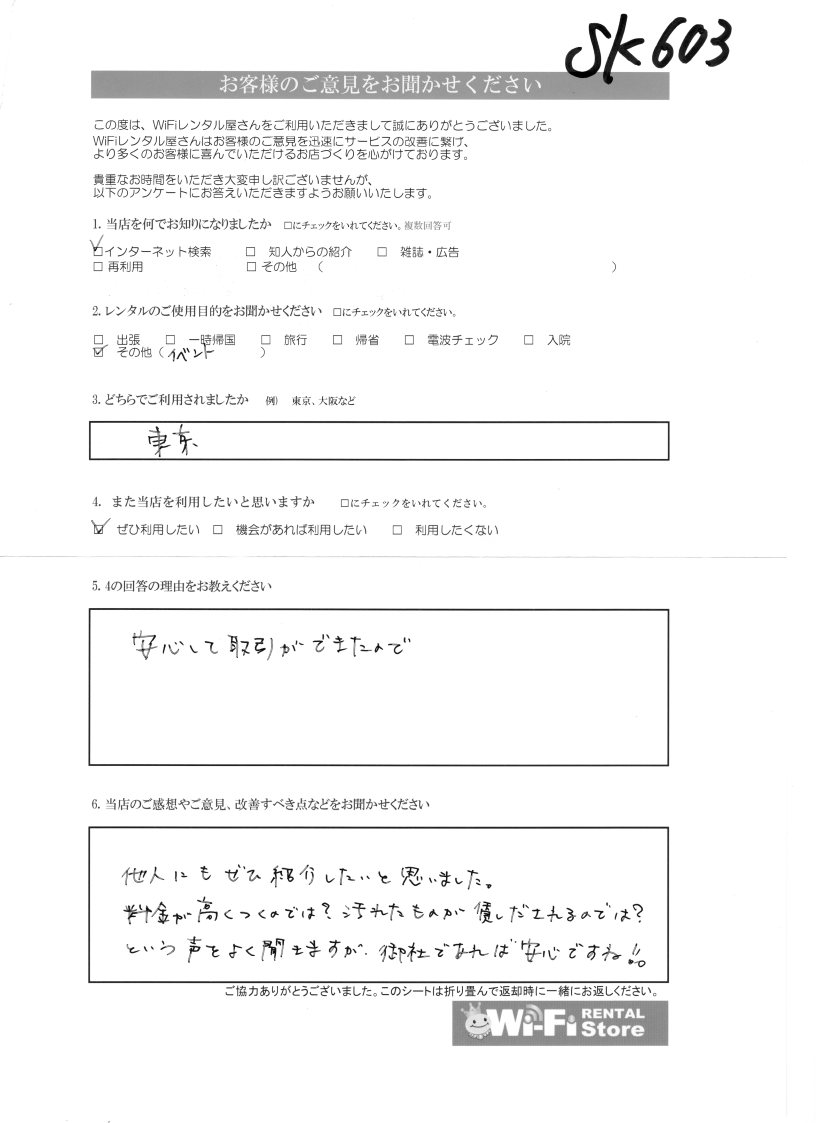 SK603
お客様のご意見をお聞かせください
この度は、WiFiレンタル屋さんをご利用いただきまして誠にありがとうございました。
WiFiレンタル屋さんはお客様のご意見を迅速にサービスの改善に繋げ、
より多くのお客様に喜んでいただけるお店づくりを心がけております。
貴重なお時間をいただき大変申し訳ございませんが、
以下のアンケートにお答えいただきますようお願いいたします。
1. 当店を何でお知りになりましたか □にチェックをいれてください。複数回答可
☑インターネット検索 □ 知人からの紹介 □ 雑誌・広告
□ 再利用 □ その他 ( )
2. レンタルのご使用目的をお聞かせください □にチェックをいれてください。
□ 出張 □ 一時帰国 □ 旅行 □ 帰省 □ 電波チェック □ 入院
☑ その他 (イベント )
3. どちらでご利用されましたか 例) 東京、大阪など
東京
4. また当店を利用したいと思いますか □にチェックをいれてください。
☑ ぜひ利用したい □ 機会があれば利用したい □ 利用したくない
5. 4の回答の理由をお教えください
安心して取引ができたので
6. 当店のご感想やご意見、改善すべき点などをお聞かせください
他人にもぜひ紹介したいと思いました。
料金が高くつくのでは?汚れたものが貸しだされるのでは?
という声をよく聞きますが、御社であれば安心ですね!!
ご協力ありがとうございました。このシートは折り畳んで返却時に一緒にお返しください。
Wi-Fi RENTAL Store